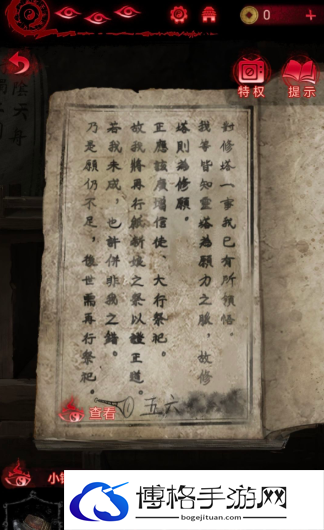 0 +
特权 提示
對修塔一事我已有所領悟。
我等皆知靈塔為願力之脈，故修
塔則為修願。
正應該廣增信徒、大行祭祀。
故我將再行紙新娘之祭以證王道。
若我未成，也許併非我之錯。
乃是願仍不足，後世需再行祭祀。
五六
查看
小
博格手游网
www.bogejituan.com